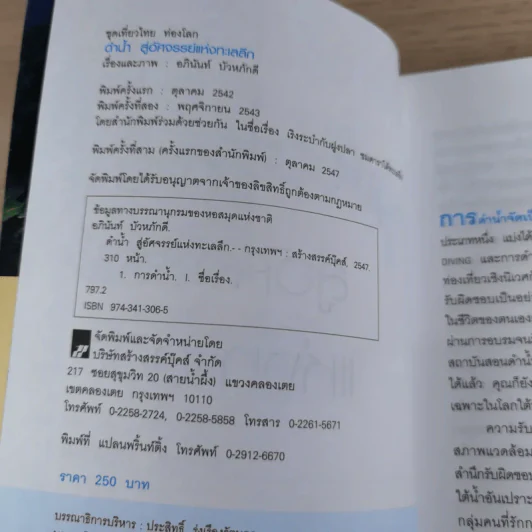 ชุดเที่ยวไทย ท่องโลก
ดำน้ำ สู่อัศจรรย์แห่งทะเลลึก
เรื่องและภาพ : อภินันท์ บัวหภักดี
พิมพ์ครั้งแรก : ตุลาคม 2542
พิมพ์ครั้งที่สอง : พฤศจิกายน 2543
โดยสำนักพิมพ์ร่วมด้วยช่วยกัน ในชื่อเรื่อง เริงระบำกับฝูงปลา
พิมพ์ครั้งที่สาม (ครั้งแรกของสำนักพิมพ์) : ตุลาคม 2547
จัดพิมพ์โดยได้รับอนุญาตจากเจ้าของลิขสิทธิ์ถูกต้องตามกฎหมาย
ข้อมูลทางบรรณานุกรมของหอสมุดแห่งชาติ
อภินันท์ บัวหภักดี.
ดำน้ำ สู่อัศจรรย์แห่งทะเลลึก.-- กรุงเทพฯ : สร้างสรรค์บุ๊คส์, 2547
310 หน้า.
1. การดำน้ำ. I. ชื่อเรื่อง.
797.2
ISBN 974-341-306-5
จัดพิมพ์และจัดจำหน่ายโดย
บริษัทสร้างสรรค์บุ๊คส์ จำกัด
217 ซอยสุขุมวิท 20 (สายน้ำผึ้ง) แขวงคลองเตย
เขตคลองเตย กรุงเทพฯ 10110
โทรศัพท์ 0-2258-2724, 0-2258-5858 โทรสาร 0-2261-5671
พิมพ์ที่ แปลนพริ้นท์ติ้ง โทรศัพท์ 0-2912-6670
ราคา 250 บาท
บรรณาธิการบริหาร : ประสิทธิ์
การดำน้ำจัดเป็
ประเภทหนึ่ง แบ่งได้
DIVING และการดำ
ท่องเที่ยวเชิงนิเวศ
รับผิดชอบเป็นอย่า
ในชีวิตของตนเอง
ผ่านการอบรมจน
สถาบันสอนดำน้ำ
ได้แล้ว คุณก็ยัง
เฉพาะในโลกใต้
ความรับ
สภาพแวดล้อม
สำนึกรับผิดชอบ
ใต้น้ำอันเปราะ
กลุ่มคนที่รัก